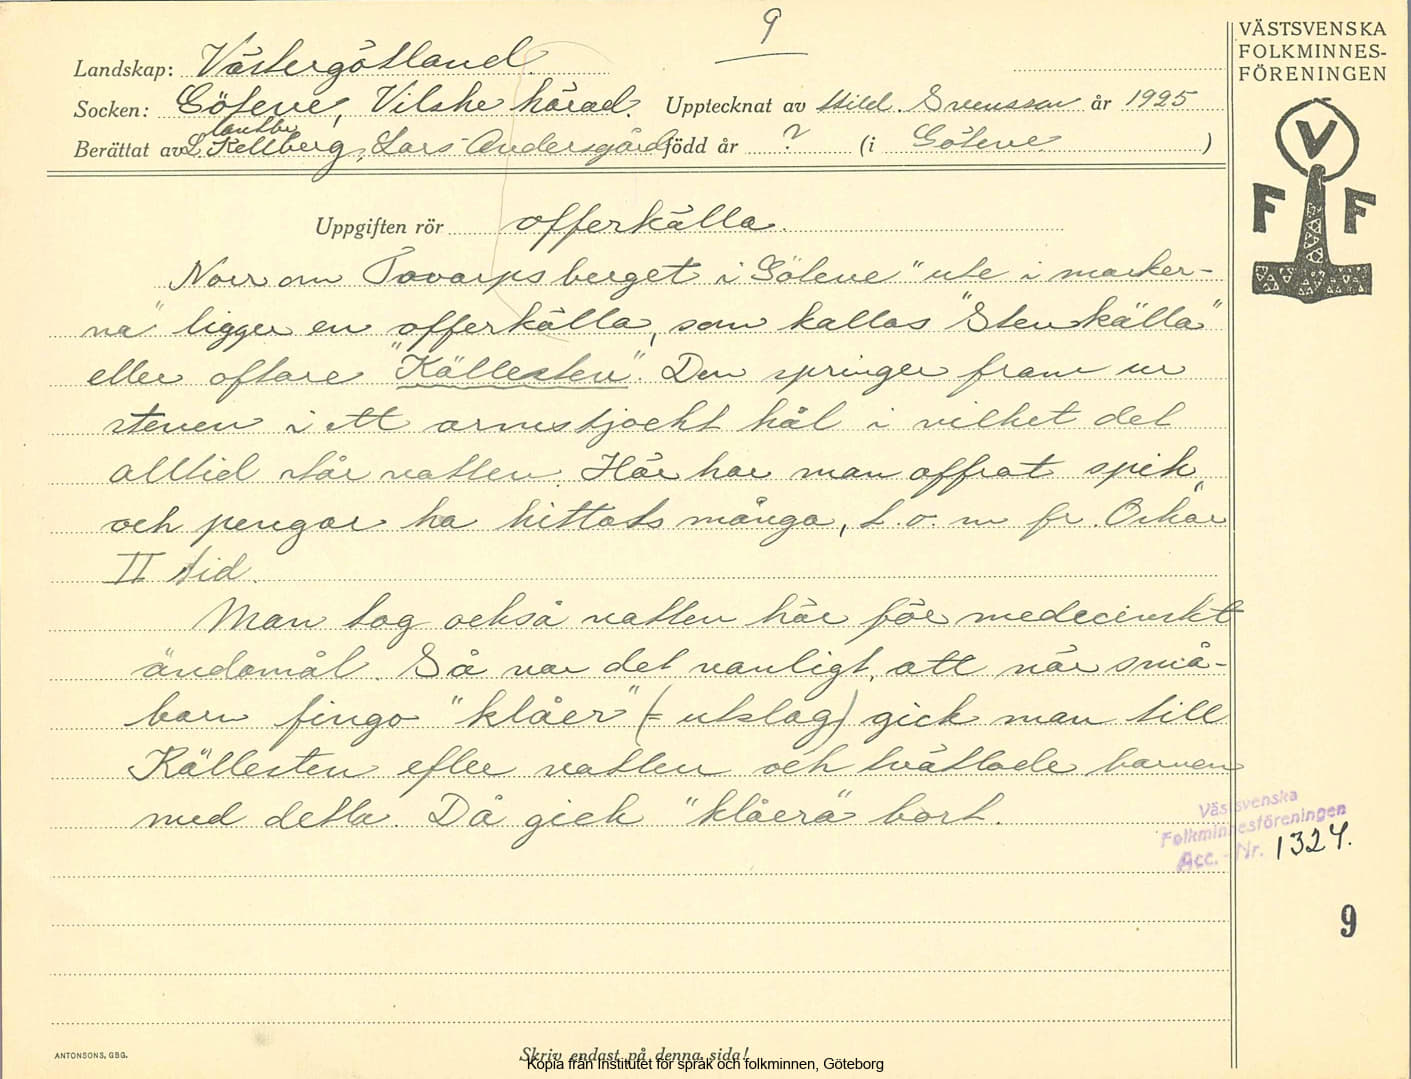 9
VÄSTSVENSKA
FOLKMINNES-
FÖRENINGEN
Landskap: Västergötland.
Socken: Göteve, Vilske härad. Upptecknat av Hild. Svensson år 1925
lantbr.
Berättat av L. Kellberg, Lars-Andersgård född år ? (i Göteve )
V
F F
Uppgiften rör offerkälla.
Norr om Tovarpsberget i Göteve "ute i marker-
na" ligger en offerkälla, som kallas "Stenkälla"
eller oftare "Källesten". Den springer fram ur
stenen i ett armstjockt hål i vilket det
alltid står vatten. Här har man offrat spik
och pengar ha hittats många, t. o. m fr. Oskar
II tid.
Man tog också vatten här för medecinskt
ändamål. Så var det vanligt, att när små-
barn fingo "klåer" (= utslag) gick man till
Källesten efter vatten och tvättade barnen
med detta. Då gick "klåerä" bort.
Västsvenska
Folkminnesföreningen
Acc. - Nr. 1324.
9
ANTONSONS, GBG.
Skriv endast på denna sida!
Kopia från Institutet för språk och folkminnen, Göteborg